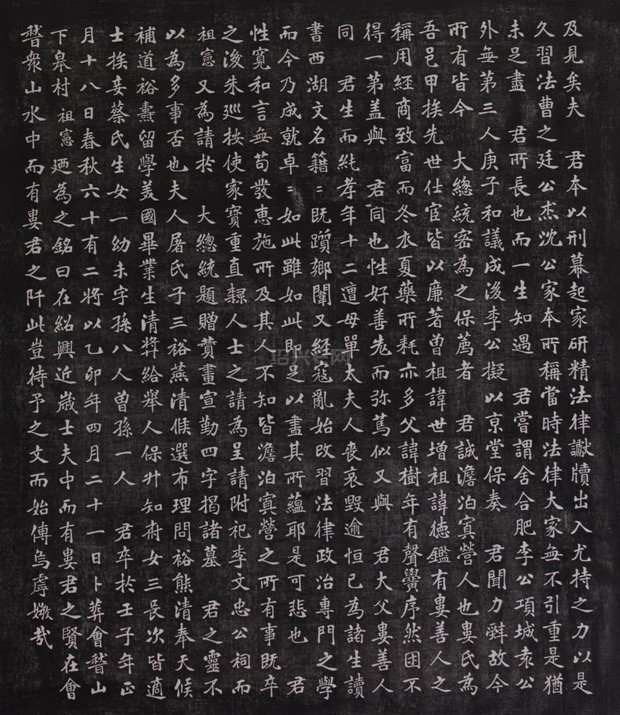 及見矣夫　君本以刑幕起家研精法律讞牘出入尤持之力以是
久習法曹之廷公杰沈公家本所稱當時法律大家無不引重是猶
未足盡　君所長也而一生知遇　君嘗謂舍合肥李公項城袁公
外無第三人庚子和議成後李公擬以京堂保奏　君聞力辭故今
所有皆今　大總統密為之保薦者　君誠澹泊寡營人也婁氏為
吾邑甲族先世仕宦皆以廉著曾祖諱世增祖諱德鑑有婁善人之
稱用經商致富而冬衣夏藥所耗亦多父諱樹年有聲黌序然困不
得一第蓋與　君同也性好善老而弥篤似又與　君大父婁善人
同　君生而純孝年十二遭母單太夫人喪哀毀逾恒已為諸生讀
書西湖文名籍〻既躓鄉闈又經寇亂始改習法律政治專門之學
而今乃成就卓〻如此雖如此即足以盡其所蘊耶是可悲也　君
性寬和言無苟發惠施所及其人不知皆澹泊寡營之所有事既卒
之後朱巡按使家寶重直隸人士之請為呈請附祀李文忠公祠而
祖憲又為請於　大總統題贈贊畫宣勤四字揭諸墓　君之靈不
以為多事否也夫人屠氏子三裕燕清候選布理問裕熊清奉天候
補道裕燾留學美國畢業生清奬給舉人保升知府女三長次皆適
士族妾蔡氏生女一幼未字孫八人曽孫一人　君卒於壬子年正
月十八日春秋六十有二將以乙卯年四月二十一日卜葬會嵇山
下皋村祖憲廼為之銘曰在紹興近嵗士夫中而有婁君之賢在會
嵇衆山水中而有婁君之阡此豈待予之文而始傳烏虖媺哉